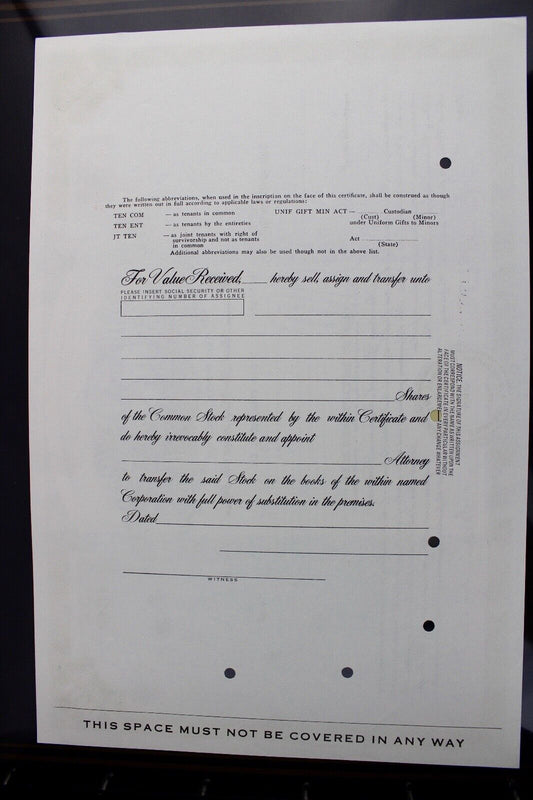 The following abbreviations, when used in the inscription on the face of this certificate, shall be construed as though
they were written out in full according to applicable laws or regulations:
TEN COM — as tenants in common UNIF GIFT MIN ACT — Custodian
(Cust) (Minor)
TEN ENT — as tenants by the entireties under Uniform Gifts to Minors
JT TEN — as joint tenants with right of
survivorship and not as tenants
in common
Act
(State)
Additional abbreviations may also be used though not in the above list.
For Value Received, hereby sell, assign and transfer unto
PLEASE INSERT SOCIAL SECURITY OR OTHER
IDENTIFYING NUMBER OF ASSIGNEE
Shares
of the Common Stock represented by the within Certificate and
do hereby irrevocably constitute and appoint
Attorney
to transfer the said Stock on the books of the within named
Corporation with full power of substitution in the premises.
Dated
WITNESS
NOTICE: THE SIGNATURE OF THIS ASSIGNMENT
MUST CORRESPOND WITH THE NAME AS WRITTEN UPON THE
FACE OF THE CERTIFICATE IN EVERY PARTICULAR WITHOUT
ALTERATION OR ENLARGEMENT OR ANY CHANGE WHATEVER
THIS SPACE MUST NOT BE COVERED IN ANY WAY